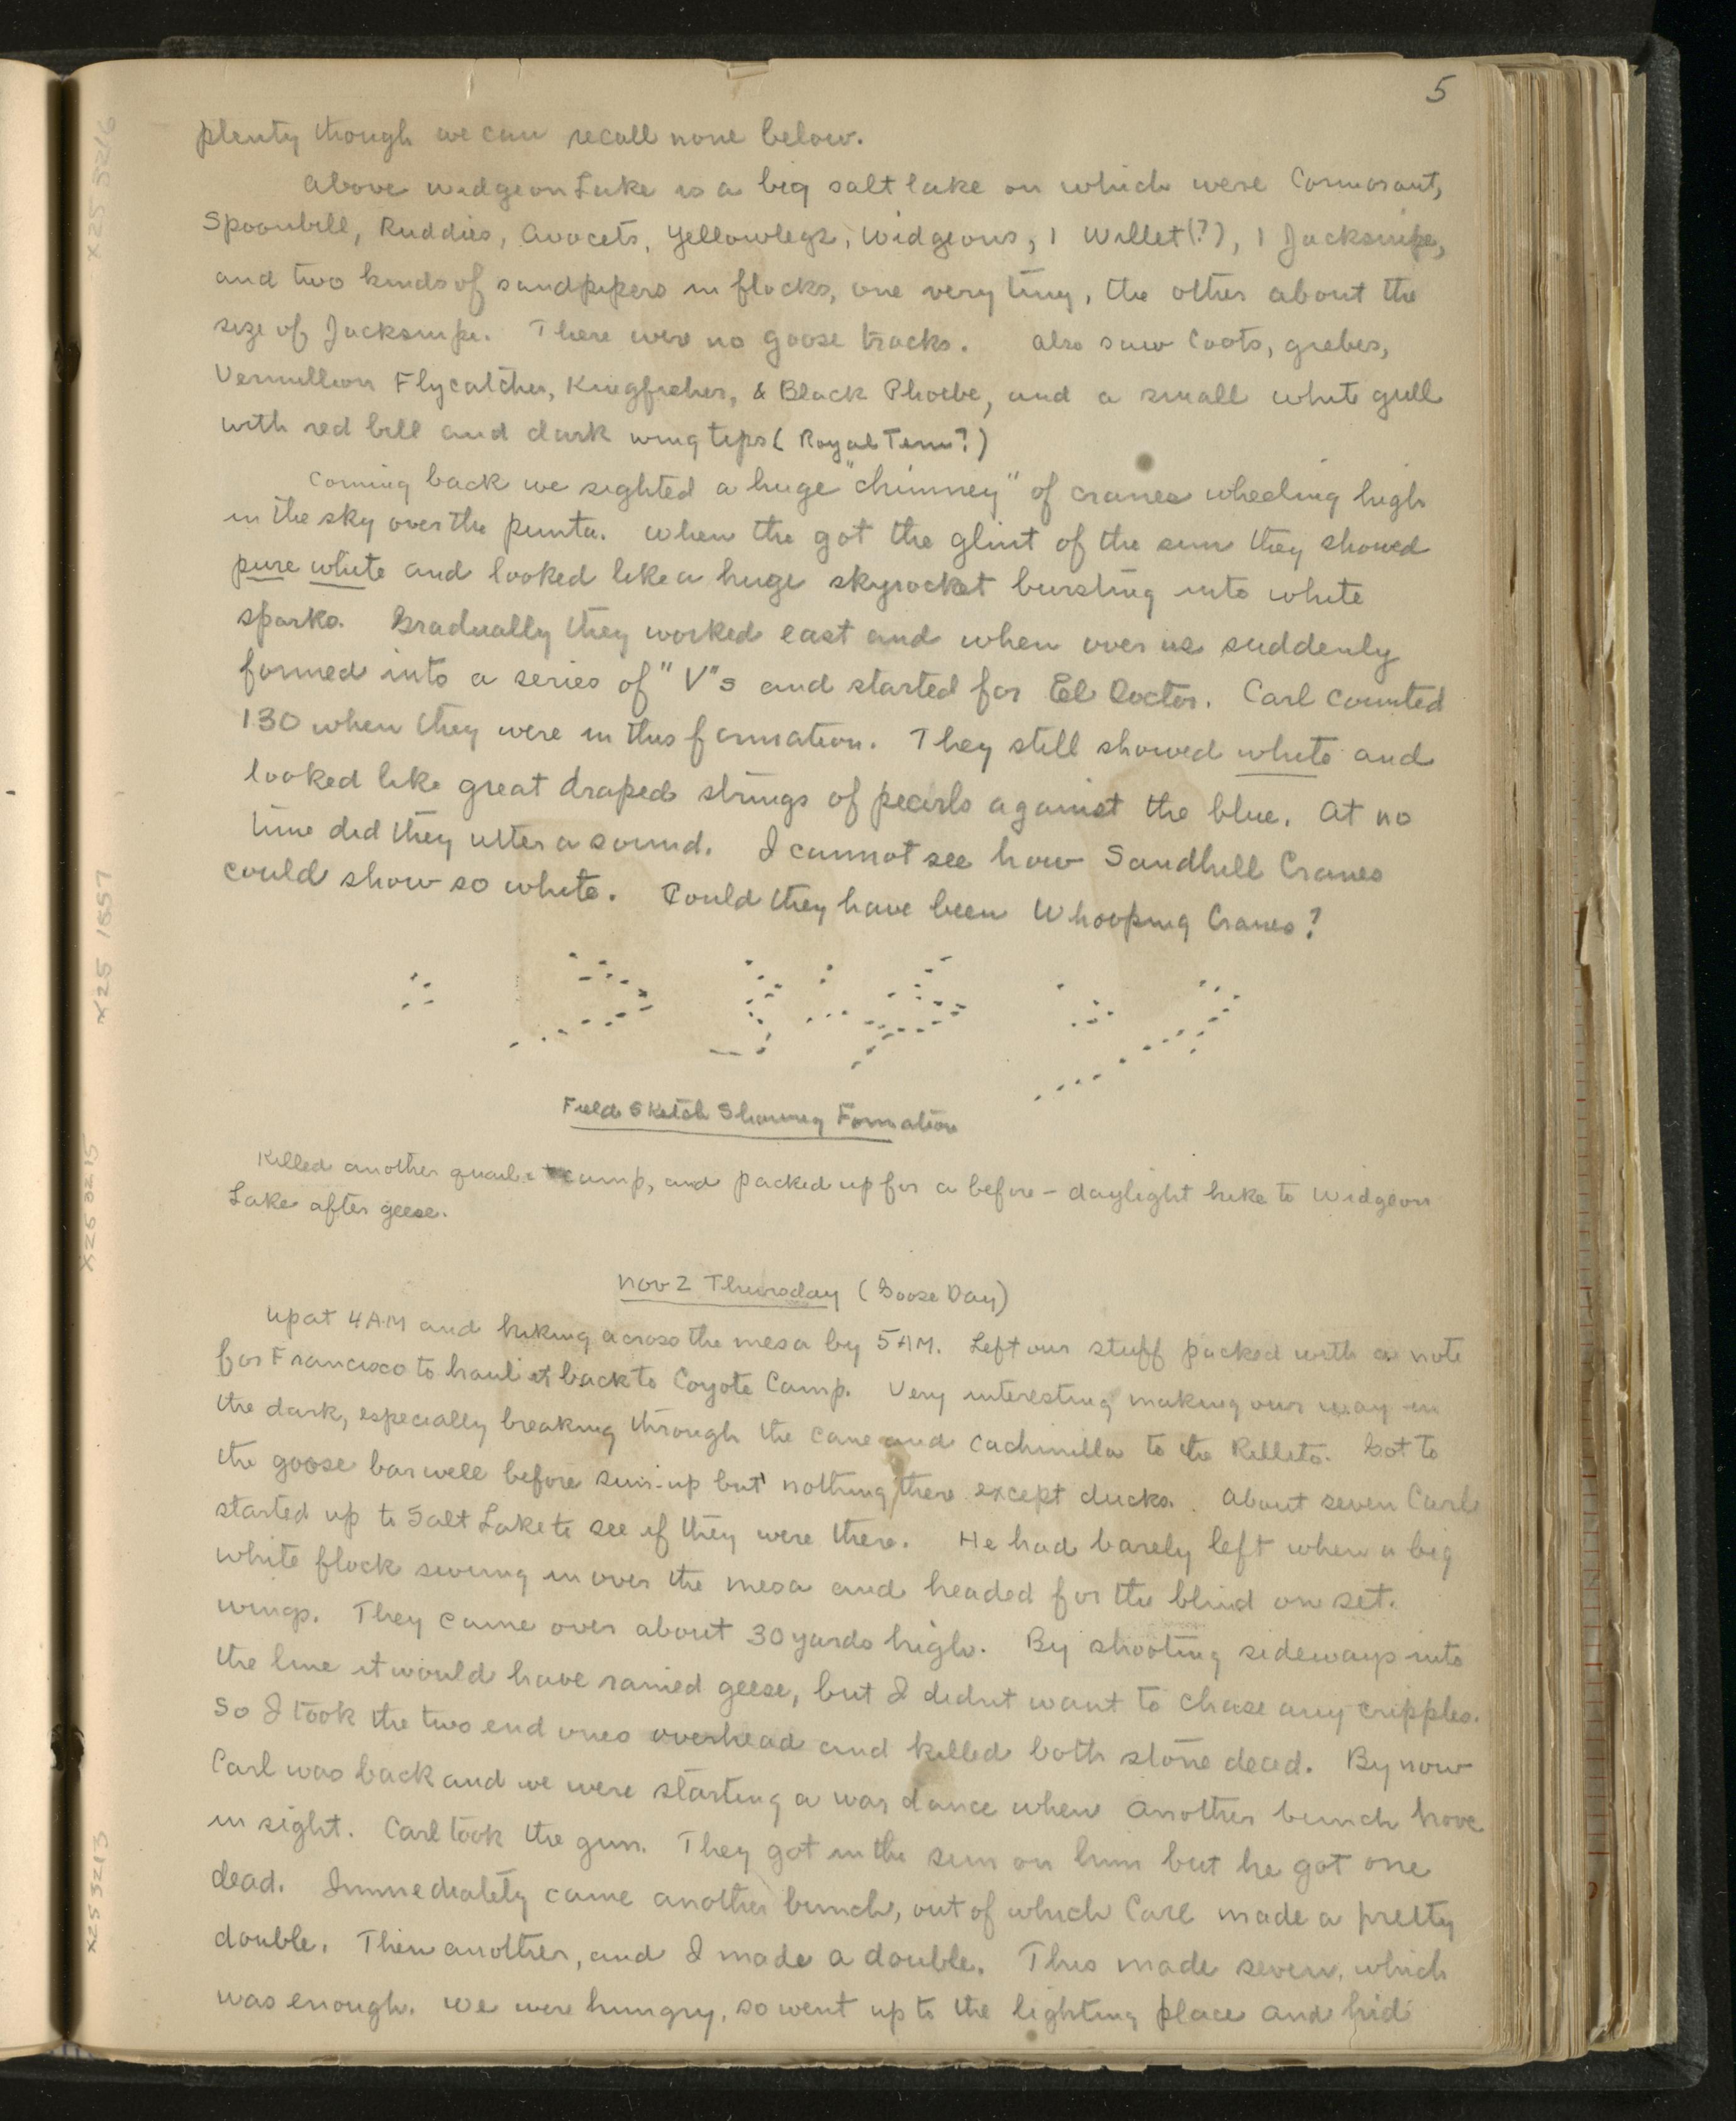 5
plenty though we can recall none below.
Above Widgeon Lake is a big salt lake on which were Cormorant,
Spoonbill, Ruddies, Avocets, Yellowlegs, Widgeons, 1 Willet(?), 1 Jacksnipe,
and two kinds of sandpipers in flocks, one very tiny, the other about the
size of Jacksnipe. There were no goose tracks. Also saw Coots, grebes,
Vermillion Flycatcher, Kingfisher, & Black Phoebe, and a small white gull
with red bill and dark wing tips (Royal Tern?)
Coming back we sighted a huge "chimney" of cranes wheeling high
in the sky over the punta. When the got the glint of the sun they showed
pure white and looked like a huge skyrocket bursting into white
sparks. Gradually they worked east and when over us suddenly
formed into a series of "V"s and started for El Doctor. Carl counted
130 when they were in this formation. They still showed white and
looked like great draped strings of pearls against the blue. At no
time did they utter a sound. I cannot see how Sandhill Cranes
could show so white. Could they have been Whooping Cranes?
Field Sketch Showing Formation
Killed another quail at camp, and packed up for a before-daylight hike to Widgeon
Lake after geese.
Nov 2 Thursday (Goose Day)
Up at 4 AM and hiking across the mesa by 5 AM. Left our stuff packed with a note
for Francisco to haul it back to Coyote Camp. Very interesting making our way in
the dark, especially breaking through the cane and cachinilla to the Rillito. Got to
the goose bar well before sun-up but nothing there except ducks. About seven Carl
started up to Salt Lake to see if they were there. He had barely left when a big
white flock swung in over the mesa and headed for the blind on set
wings. They came over about 30 yards high. By shooting sideways into
the line it would have rained geese, but I didnt want to chase any cripples.
So I took the two end ones overhead and killed both stone dead. By now
Carl was back and we were starting a war dance when another bunch hove
in sight. Carl took the gun. They got in the sun on him but he got one
dead. Immediately came another bunch, out of which Carl made a pretty
double. Then another, and I made a double. This made seven, which
was enough. We were hungry, so went up to the lighting place and hid
X25 3216
X25 1857
X25 3215
X25 3213